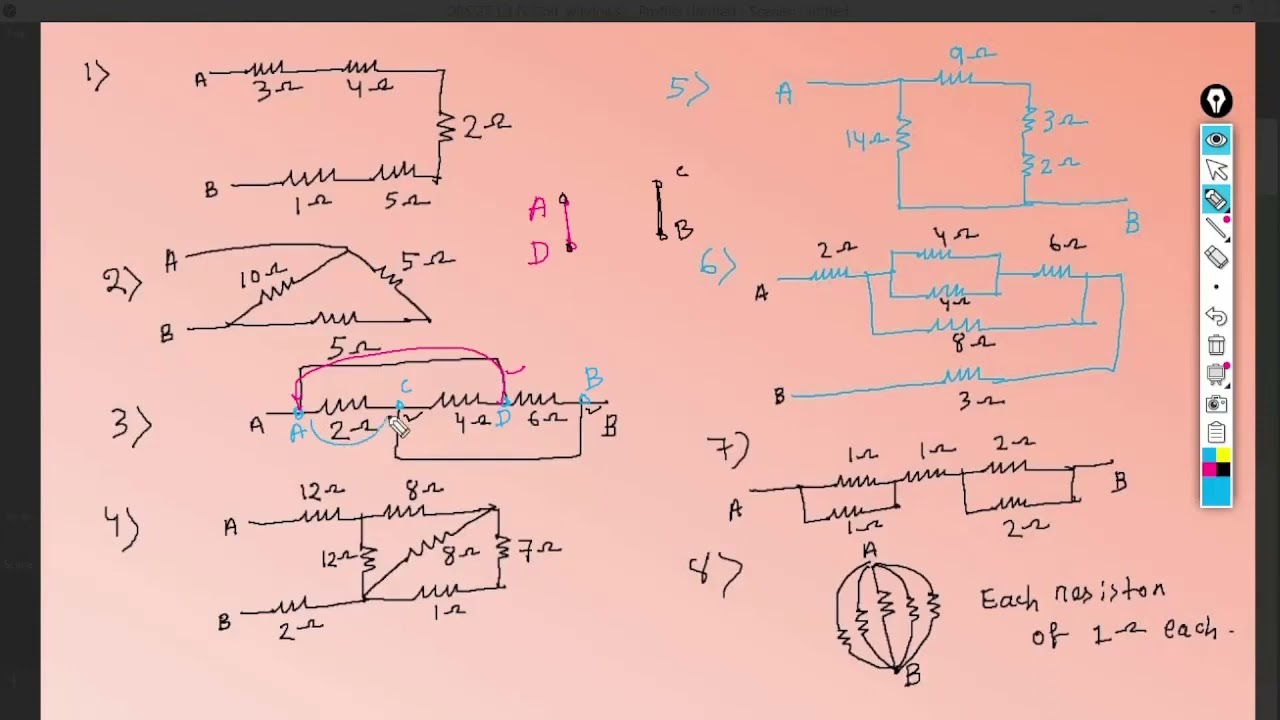 1)
A
3Ω
4Ω
2Ω
B
1Ω
5Ω
2)
A
10Ω
5Ω
B
5Ω
A
D
C
B
3)
A
A
2Ω
C
4Ω
D
6Ω
B
B
4)
A
12Ω
8Ω
12Ω
8Ω
7Ω
B
2Ω
1Ω
5)
A
9Ω
14Ω
3Ω
2Ω
B
6)
A
2Ω
4Ω
6Ω
4Ω
8Ω
B
3Ω
7)
A
1Ω
1Ω
2Ω
B
1Ω
2Ω
8)
A
B
Each resistor
of 1Ω each.